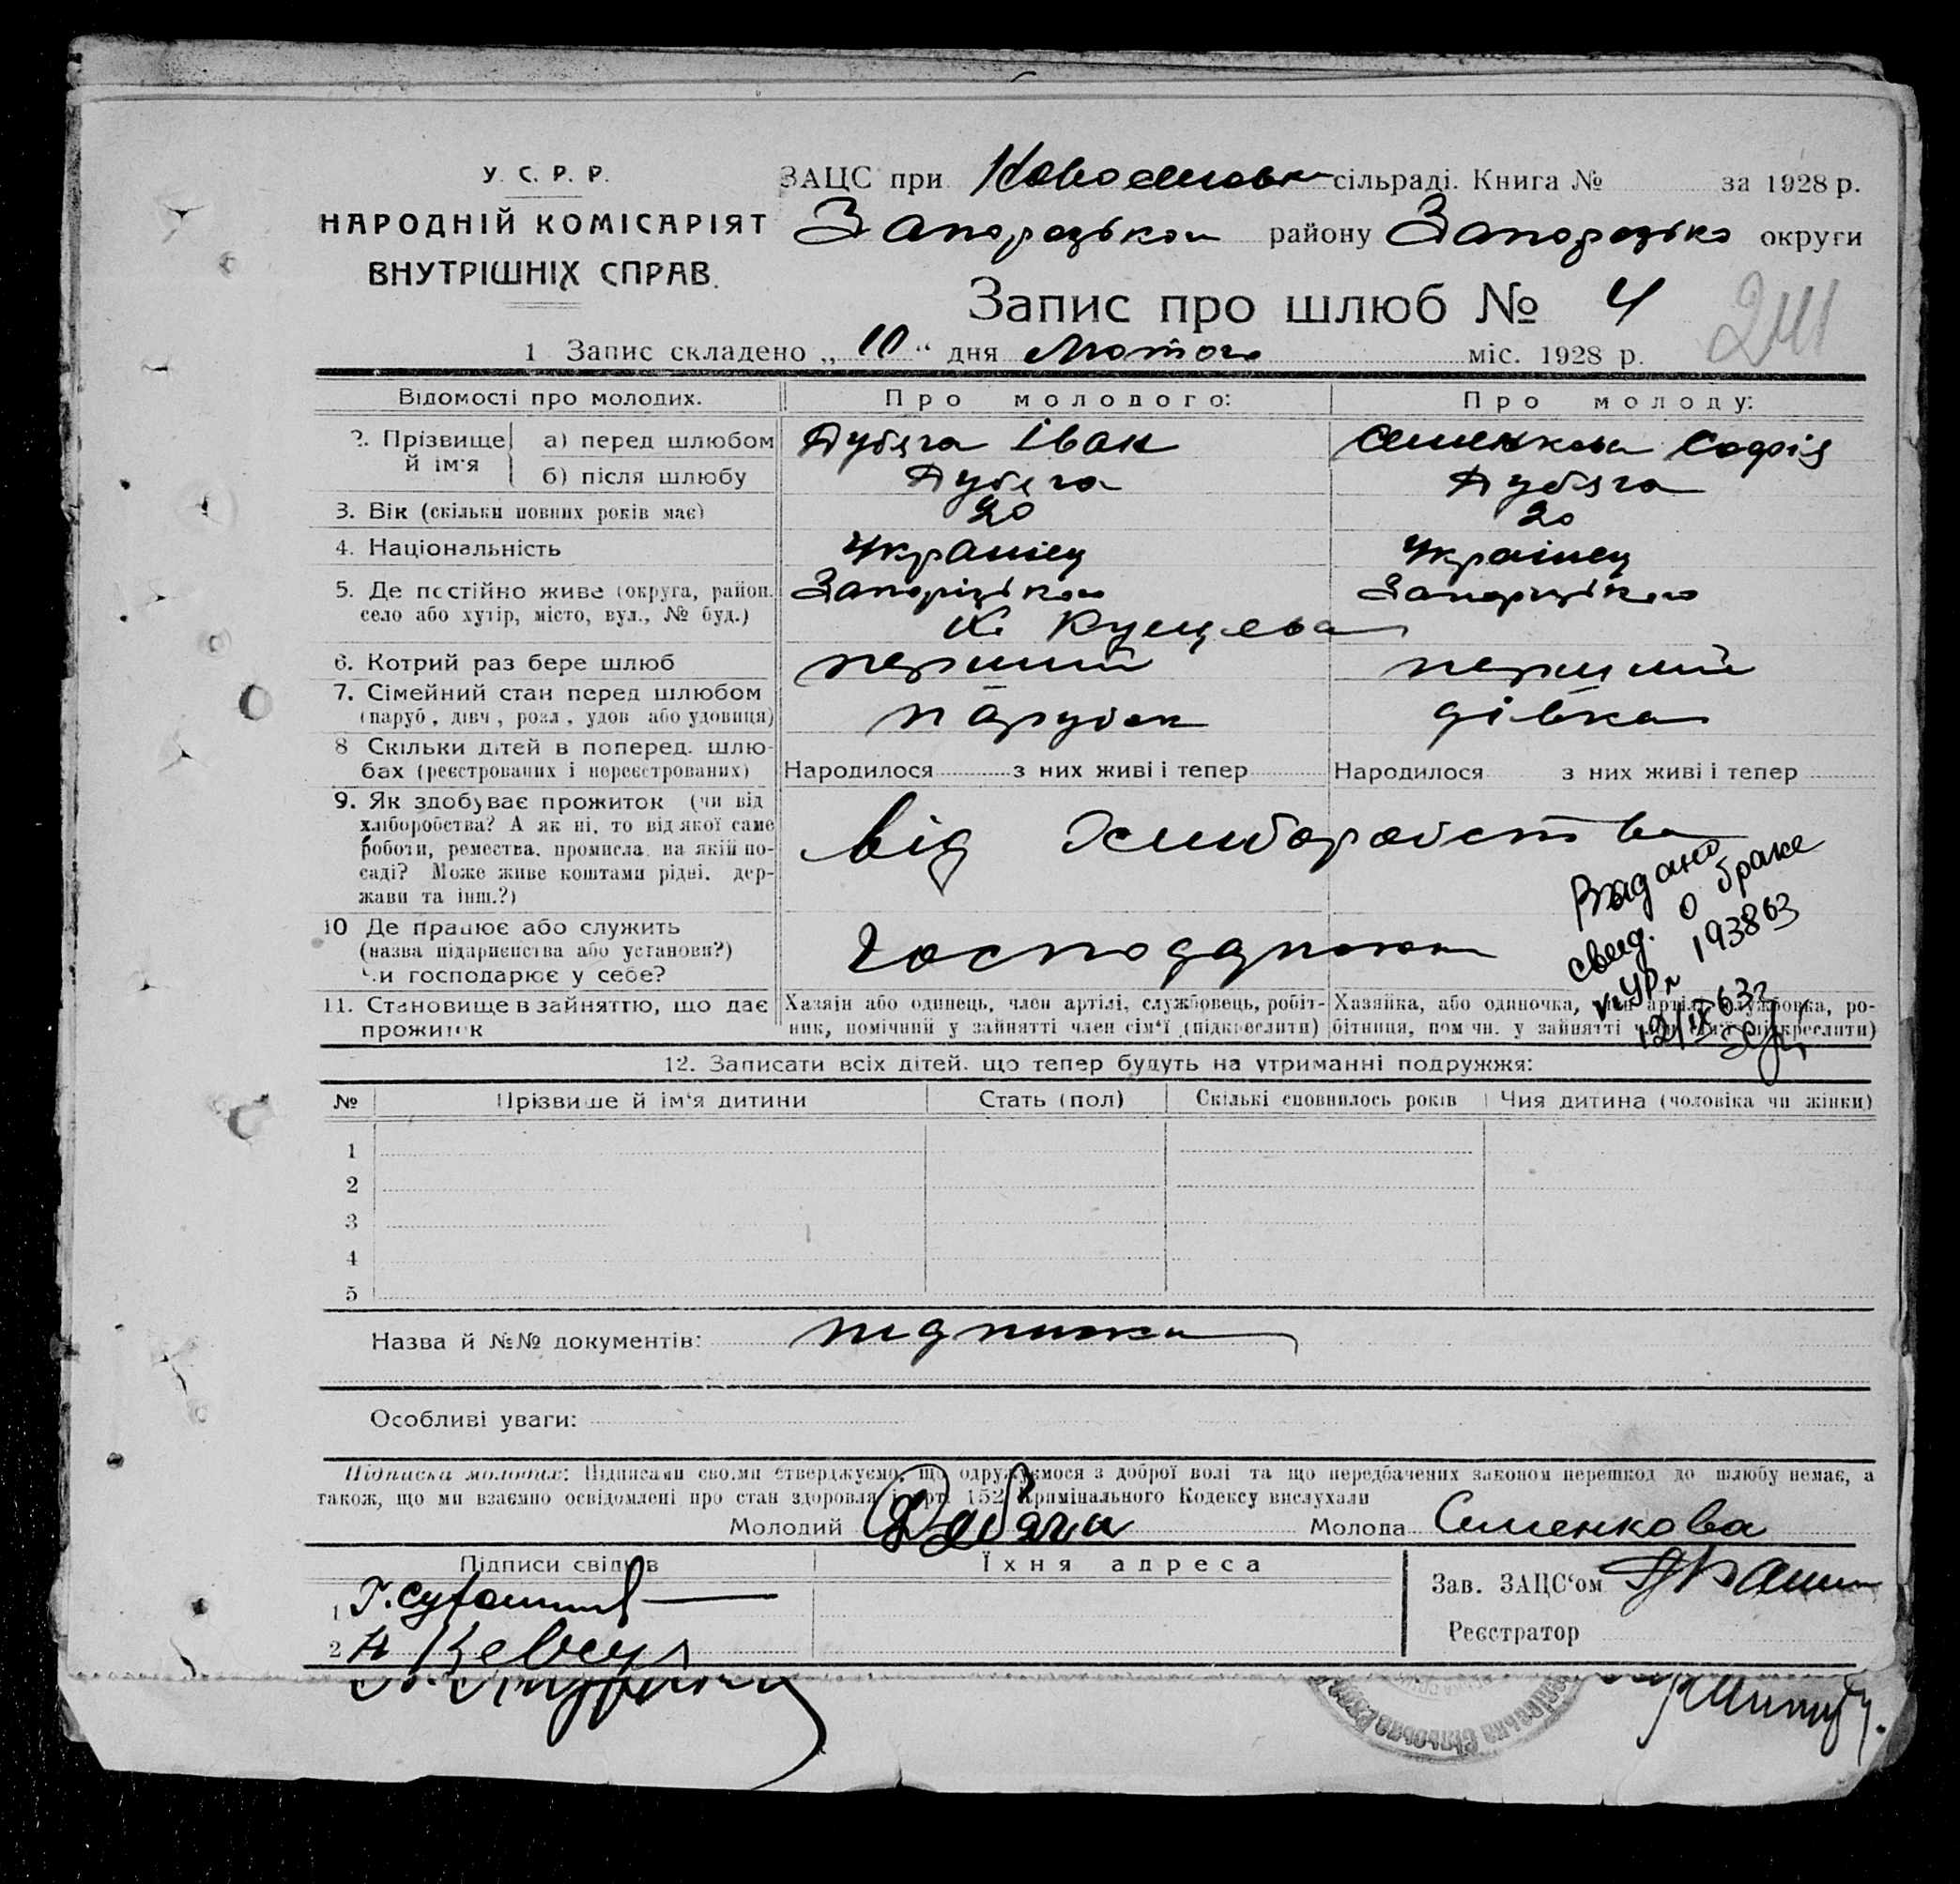 У. С. Р. Р.
НАРОДНІЙ КОМІСАРІЯТ
ВНУТРІШНІХ СПРАВ.
ЗАЦС при сільраді. Книга № за 1928 р.
Запорозького району Запорозько округи
Запис про шлюб № 4
241
1 Запис складено „ 10 “ дня Лютого міс. 1928 р.
Відомості про молодих. Про молодого: Про молоду:
2. Прізвище й ім'я а) перед шлюбом Дубяга Іван Семенкова Софія
б) після шлюбу Дубяга Дубяга
3. Вік (скільки повних років має) 20 20
4. Національність Українец Українец
5. Де постійно живе (округа, район, Запорізького Запорізького
село або хутір, місто, вул., № буд.) Кущева
6. Котрий раз бере шлюб перший перший
7. Сімейний стан перед шлюбом
(паруб., дівч., розл., удов. або удовиця) парубок дівка
8 Скільки дітей в поперед. шлю-
бах (реєстрованих і нереєстрованих) Народилося з них живі і тепер Народилося з них живі і тепер
9. Як здобуває прожиток (чи від
хліборобства? А як ні, то від якої саме
роботи, ремества, промисла, на якій по-
саді? Може живе коштами рідні, дер-
жави та інш.?)
від хлиборобства
Видано
свид. о браке
193863
10 Де працює або служить
(назва підприємства або установи?)
чи господарює у себе?
11. Становище в зайняттю, що дає
прожиток
Хазяїн або одинець, член артілі, службовець, робіт-
ник, помічний у зайнятті член сім'ї (підкреслити)
Хазяйка, або одиночка, член артілі, службовка, ро-
бітниця, пом чн. у зайнятті член сім'ї (підкреслити)
12. Записати всіх дітей, що тепер будуть на утриманні подружжя:
№ Прізвише й ім'я дитини Стать (пол) Скількі сповнилось років Чия дитина (чоловіка чи жінки)
1
2
3
4
5
Назва й №№ документів: підписка
Особливі уваги:
Підписка молодих: Підписами своїми стверджуємо, що одружуємося з доброї волі та що передбачених законом перешкод до шлюбу немає, а
також, що ми взаємно освідомлені про стан здоровля і арт. 152 Кримінального Кодексу вислухали
Молодий Дубяга Молода Семенкова
Підписи свідків Їхня адреса
Зав. ЗАЦС‘ом
1
Реєстратор
2